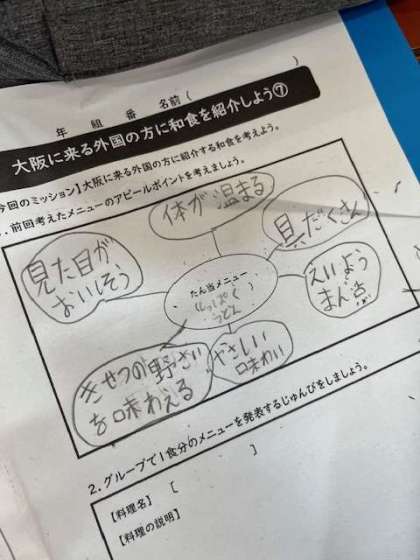 年 組 番 名前（ ）
大阪に来る外国の方に和食を紹介しよう⑦
今回のミッション】大阪に来る外国の方に紹介する和食を考えよう。
．前回考えたメニューのアピールポイントを考えましょう。
体が温まる
見た目が
おいしそう
具だくさん
たん当メニュー
（しっぽく
うどん）
えいよう
まん点
きせつの野さい
を味わえる
やさしい
味わい
2．グループで1食分のメニューを発表するじゅんびをしましょう。
【料理名】［ ］
【料理の説明】